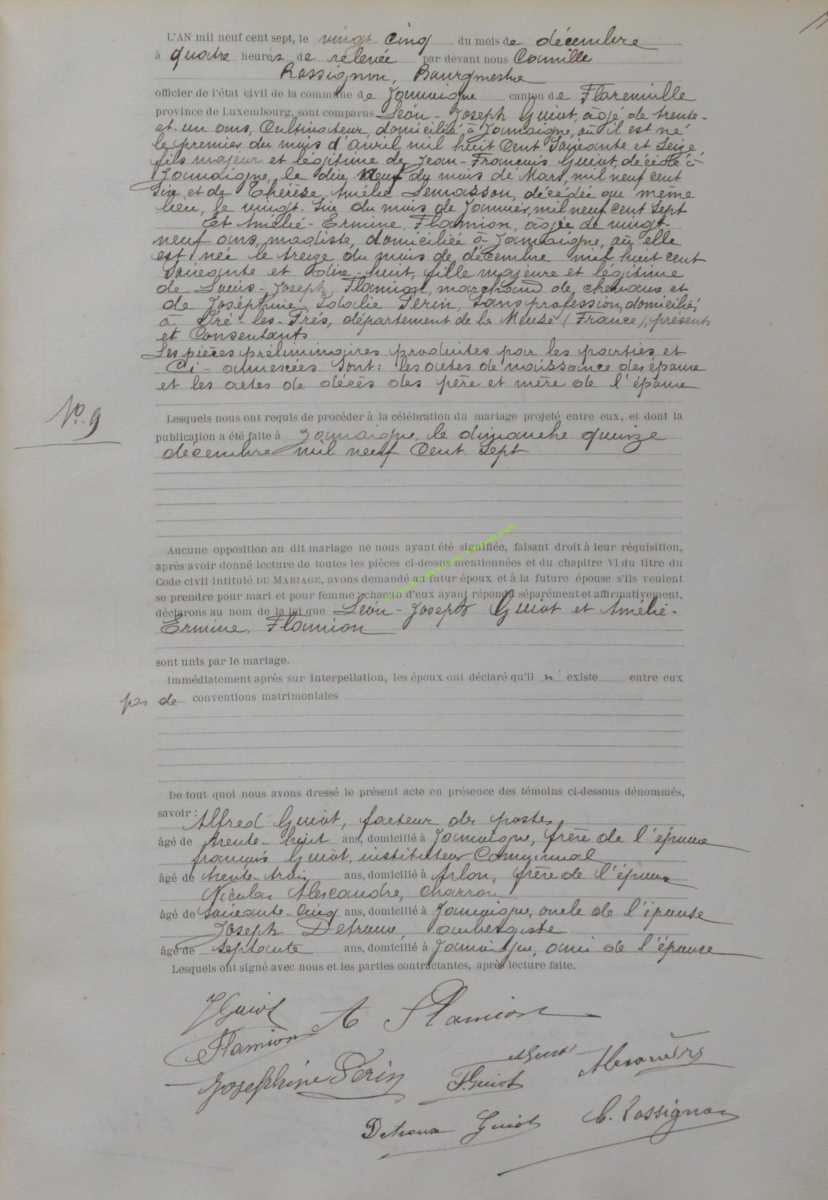 L'AN mil neuf cent sept, le vingt cinq du mois de décembre
à quatre heures de relevée par devant nous Camille
Rossignon, Bourgmestre
officier de l'état civil de la commune de Jamoigne canton de Florenville
province de Luxembourg, sont comparus Léon-Joseph Guiot, âgé de trente-
et un ans, Cultivateur, domicilié à Jamoigne, où il est né
le premier du mois d'avril mil huit cent Soixante et Seize
fils majeur et légitime de Jean-François Guiot, décédé à
Jamoigne, le dix neuf du mois de Mars, mil neuf cent
Six, et de Thérèse, Amélie Lemasson, décédée au même
lieu, le vingt-Six du mois de Janvier, mil neuf cent Sept
Et Amélie-Ermine, Flamion, âgée de vingt
neuf ans, modiste, domiciliée à Jamoigne, où elle
est née le treize du mois de décembre mil huit cent
Soixante et dix-huit, fille majeure et légitime
de Louis-Joseph, Flamion, marchand de chevaux et
de Joséphine, Perin, Sans profession, domiciliés
à Bré-les-Prés, département de la Meuse (France), présents
et Consentants
Les pièces préliminaires produites par les parties et
Ci-annexées Sont: les actes de naissance des époux
et les actes de décès des père et mère de l'époux
N° 9
Lesquels nous ont requis de procéder à la célébration du mariage projeté entre eux, et dont la
publication a été faite à Jamoigne, le dimanche quinze
décembre mil neuf Cent Sept
Aucune opposition au dit mariage ne nous ayant été signifiée, faisant droit à leur réquisition,
après avoir donné lecture de toutes les pièces ci-dessus mentionnées et du chapitre VI du titre du
Code civil intitulé DE MARIAGE, avons demandé au futur époux et à la future épouse s'ils veulent
se prendre pour mari et pour femme; chacun d'eux ayant répondu séparément et affirmativement,
déclarons au nom de la loi que Léon-Joseph Guiot et Amélie-
Ermine Flamion
sont unis par le mariage.
Immédiatement après sur interpellation, les époux ont déclaré qu'il n'existe entre eux
pas de conventions matrimoniales
De tout quoi nous avons dressé le présent acte en présence des témoins ci-dessous dénommés,
savoir: Alfred Guiot, facteur des postes,
âgé de trente-huit ans, domicilié à Jamoigne, frère de l'époux
françois Guiot, instituteur Communal
âgé de trente-trois ans, domicilié à Arlon, frère de l'époux
Nicolas Alexandre, charron
âgé de Soixante-cinq ans, domicilié à Jamoigne, oncle de l'épouse
Joseph Detraux, aubergiste
âgé de septante ans, domicilié à Jamoigne, ami de l'époux
Lesquels ont signé avec nous et les parties contractantes, après lecture faite.
Guiot
Flamion A Flamion
Joséphine Perin F Guiot
Guiot C. Rossignon